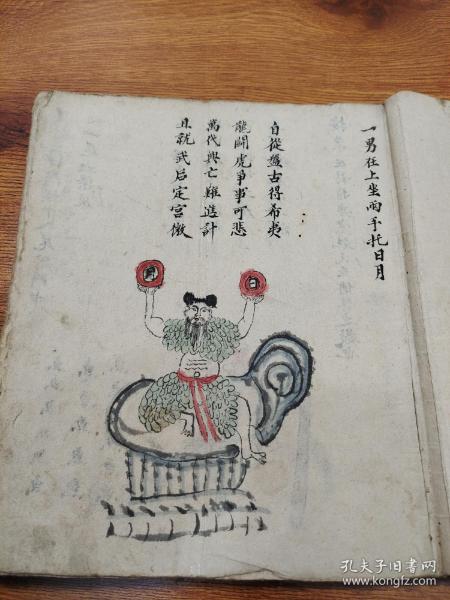 一男在上坐兩手托日月
自從盤古得希夷
龍鬪虎爭事可悲
萬代興亡難造計
且就武后定宮徵
月
日
孔夫子旧书网
www.kongfz.com